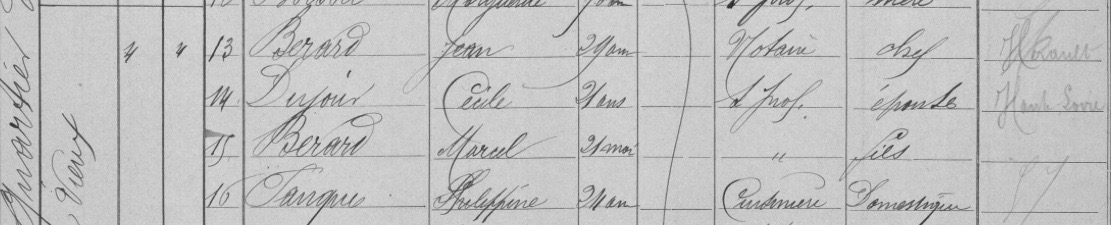 Quartier
Vieux
4 4 13 Berard Jean 29 ans Notaire chef Hérault
14 Dufour Cécile 21 ans s prof. épouse Haute Loire
15 Berard Marcel 21 moi " fils
16 Philippine 21 an Cuisinière Domestique